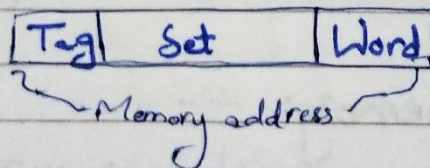 Tag Set Word
Memory address